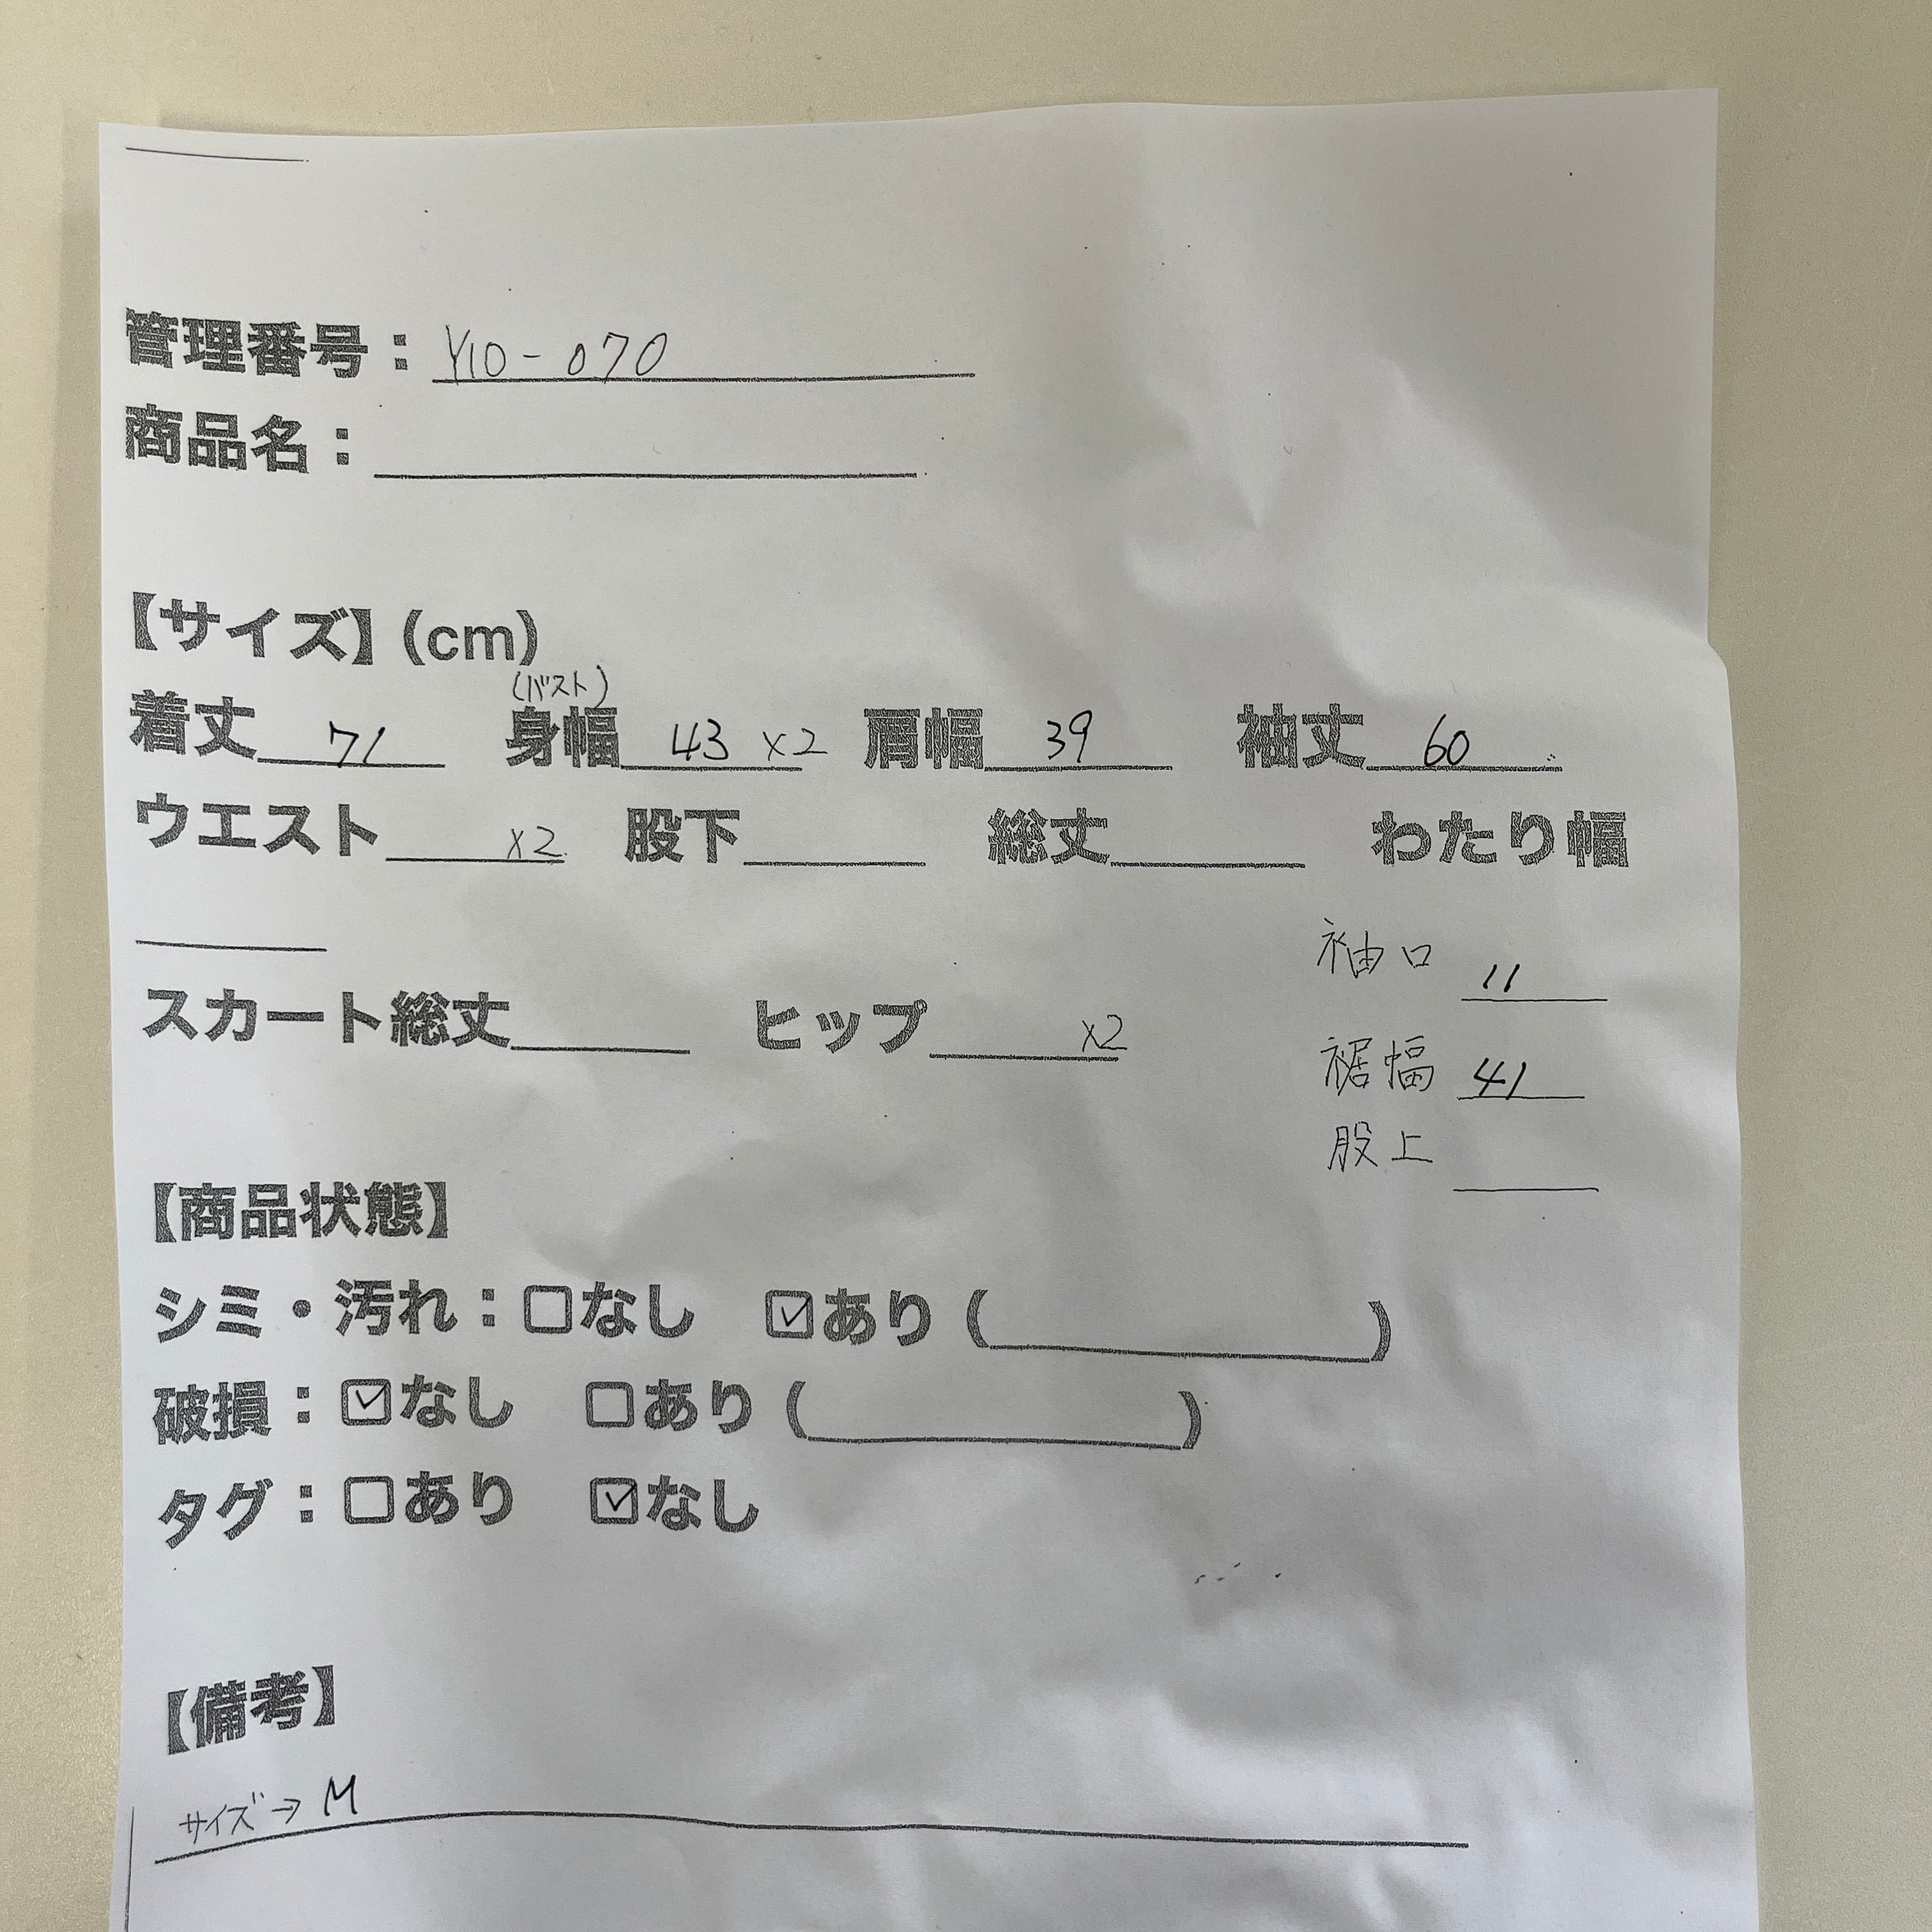 管理番号：Y10-070
商品名：
【サイズ】(cm)
(バスト)
着丈 71 身幅 43 x2 肩幅 39 袖丈 60
ウエスト x2 股下 総丈 わたり幅
袖口 11
スカート総丈 ヒップ x2
裾幅 41
股上
【商品状態】
シミ・汚れ：□なし ☑あり ( )
破損：☑なし □あり ( )
タグ：□あり ☑なし
【備考】
サイズ→M